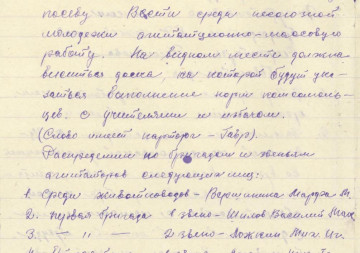 посеву Вести среди несоюзной
молодежи агитационно-массовую
работу. На видном месте должна
висеть доска, на которой будут ука-
заться выполнение норм комсомоль-
цев. с учителями и избачом.
(Слово имеет парторг - Гавр).
Распределили по бригадам и звеньям
агитаторов следующих лиц:
1. Среди животноводов - Вершинина Мария М.
2. Первая бригада 1 звено - Шилов Василий
3. — " — 2 звено -